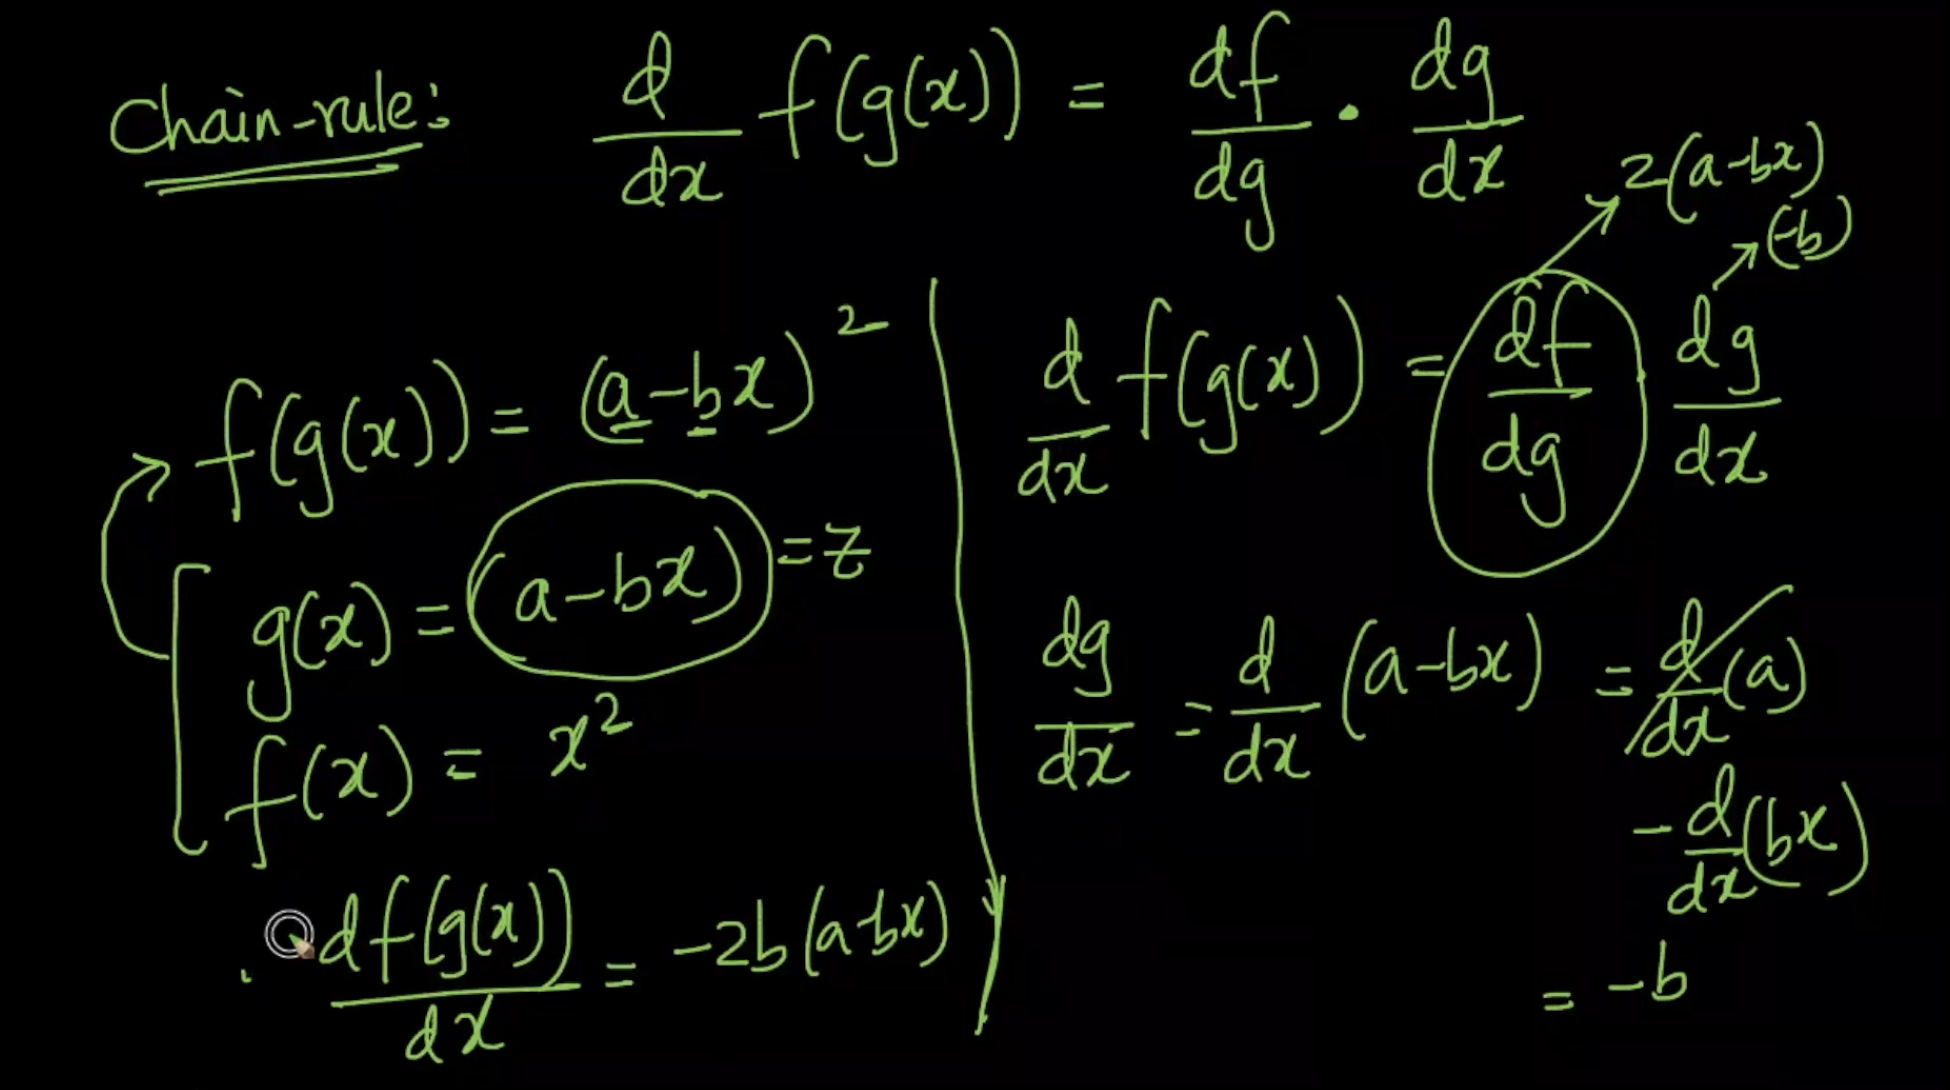 Chain-rule: d/dx f(g(x)) = df/dg · dg/dx
f(g(x)) = (a-bx)²
g(x) = (a-bx) = z
f(x) = x²
df(g(x))/dx = -2b(a-bx)
2(a-bx)
(-b)
d/dx f(g(x)) = df/dg dg/dx
dg/dx = d/dx (a-bx) = d/dx (a)
- d/dx (bx)
= -b